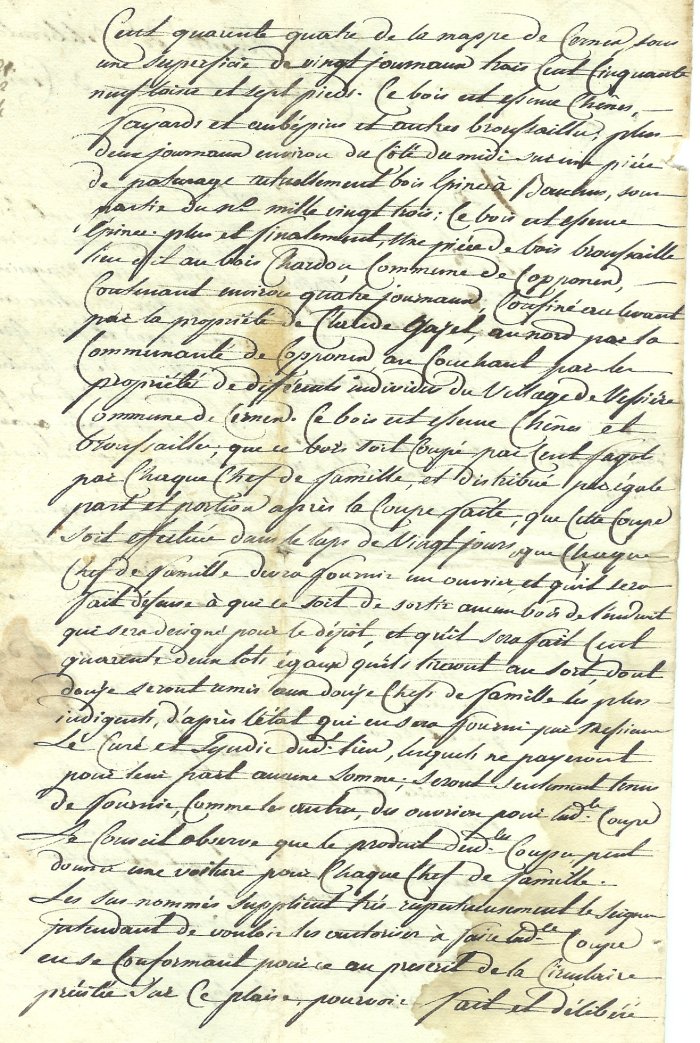 Cent quarente quatre de la mappe de Cernex, sous
une superficie de vingt journaux trois Cent Cinquante
neuf toise et sept pieds. Ce bois est essence Chênes,
fayards et aubépins et autres broussailles; plus
deux journaux environ du Côté du midi sur une pièce
de paturage actuellement bois épine à, sous
partie du No. mille vingt trois; Ce bois est essence
épine. plus et finalement, Une pièce de bois broussaille
lieu dit au bois Chardon Commune de Copponex,
Contenant environ quatre journaux, Confiné au levant
par la propriété de Claude, au nord par la
Communauté de Copponex au Couchant par les
propriété de différents individus du Village de Vessière
Commune de Cernex. Ce bois est essence Chênes et
broussailles, que ce bois soit Coupé par Cent fagot
par Chaque Chef de famille, et distribué par égale
part et portion après la Coupe faite, que Cette Coupe
soit effectuée dans le laps de Vingt jours, que Chaque
Chef de famille devra fournir un ouvrier, et qu'il sera
fait défense à qui ce soit de sortir aucun bois de l'endroit
qui sera designé pour le dépôt, et qu'il sera fait Cent
quarente deux lots égaux qu'ils tireront au sort, dont
douze seront remis aux douze Chefs de famille les plus
indigents, d'après l'état qui en sera fourni par Messieurs
Le Curé et Syndic dudt. lieu, lesquels ne payeront
pour leur part aucune Somme; seront seulement tenus
de fournir, Comme les autres, des ouvriers pour ladte. Coupe
Le Conseil observe que le produit desdtes. Coupes, peut
donner une voiture pour Chaque Chef de famille.
Les sus nommés supplient très respectueusement le Seigneur
jntendant de vouloir les autoriser à faire ladte. Coupe
en se Conformant pour ce au prescrit de la Circulaire
précitée Sur Ce plaise pourvoir. fait et délibéré